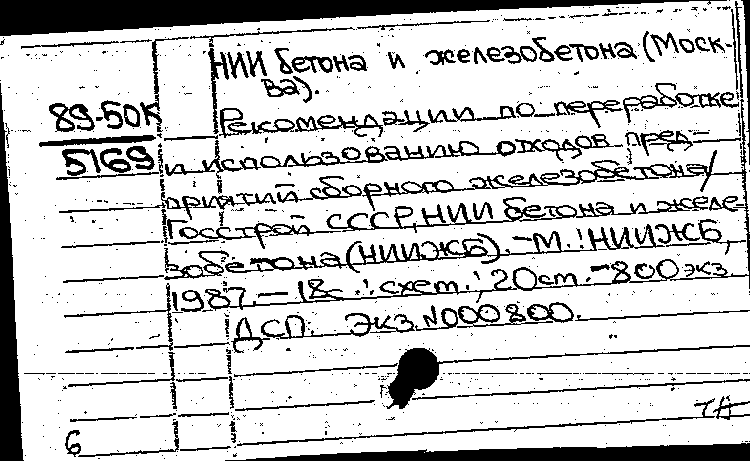 НИИ бетона и железобетона (Моск-
ва).
89-50К
Рекомендации по переработке
5169
и использованию отходов пред-
приятий сборного железобетона/
Госстрой СССР, НИИ бетона и желе-
зобетона (НИИЖБ). - М.: НИИЖБ,
1987. - 18с.: схем.; 20см. - 800экз
ДСП. Экз. N000800.
6